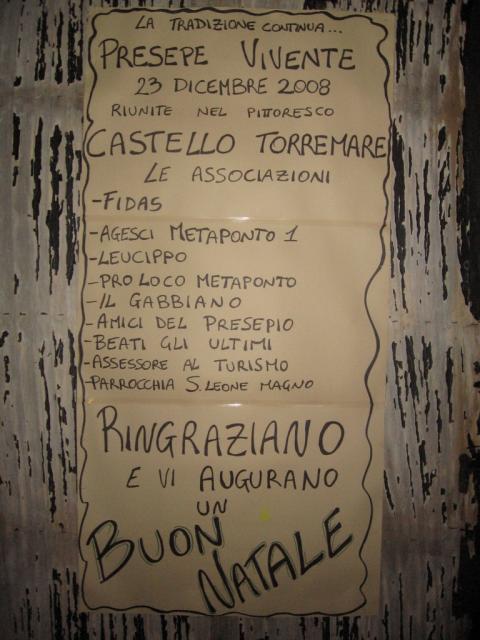 LA TRADIZIONE CONTINUA...
PRESEPE VIVENTE
23 DICEMBRE 2008
RIUNITE NEL PITTORESCO
CASTELLO TORREMARE
LE ASSOCIAZIONI
-FIDAS
-AGESCI METAPONTO 1
-LEUCIPPO
-PRO LOCO METAPONTO
-IL GABBIANO
-AMICI DEL PRESEPIO
-BEATI GLI ULTIMI
-ASSESSORE AL TURISMO
-PARROCCHIA S. LEONE MAGNO
RINGRAZIANO
E VI AUGURANO
UN
BUON
NATALE